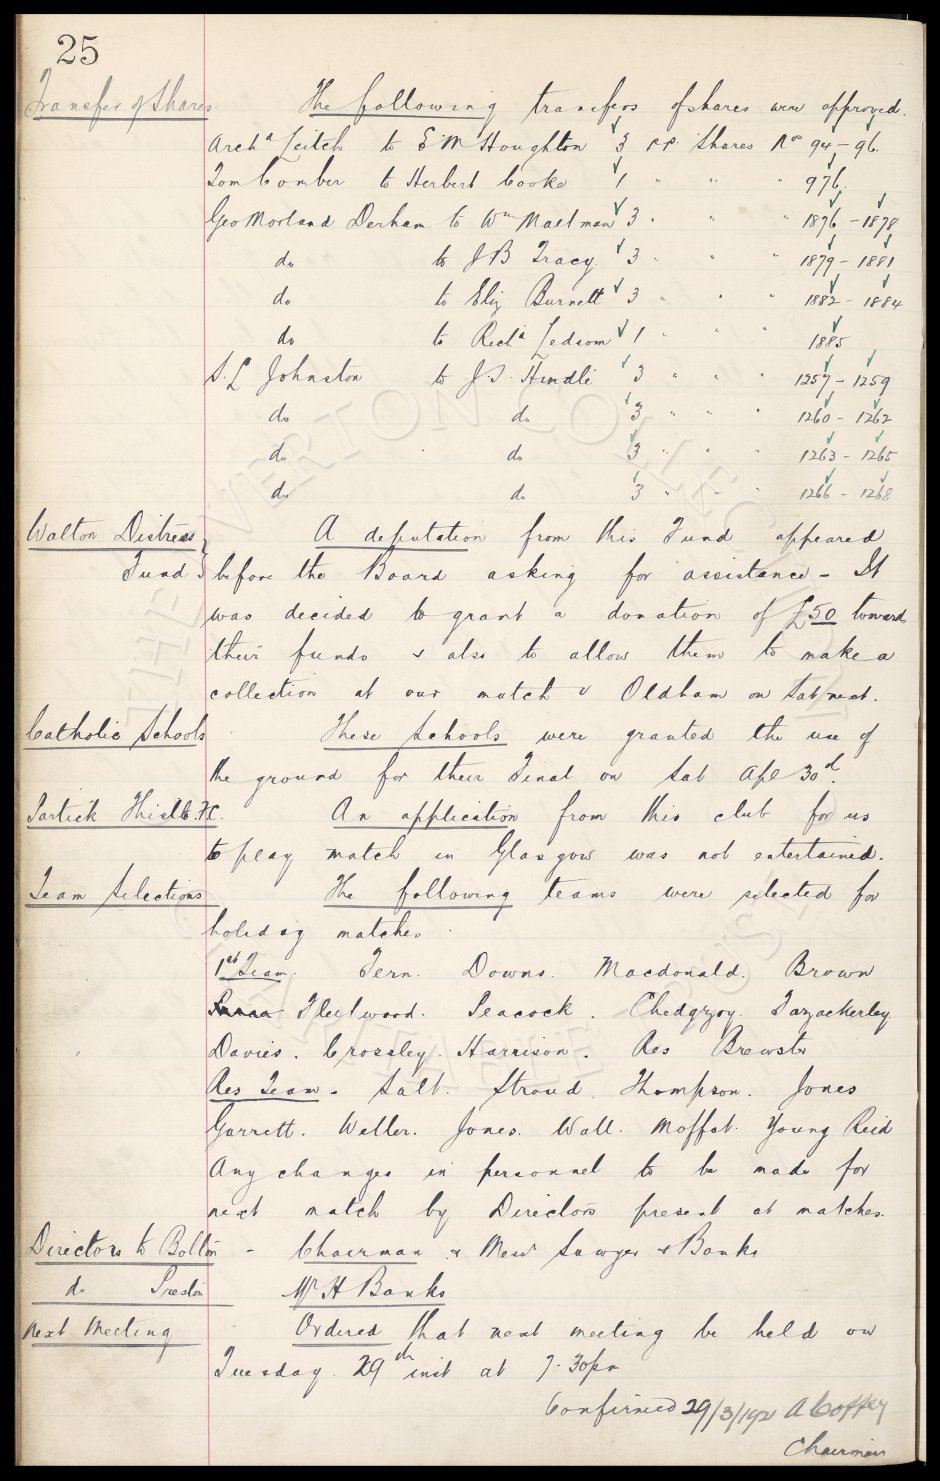 25
Transfer of Shares. The following transfers of shares were approved.
Archd Leitch to E M Houghton 3 P.P. Shares Nos 94 - 96.
Tom Comber to Herbert Cooke 1 " " " 976.
Geo Morland Derham to Wm Maltman 3 " " " 1876 - 1878
do to J B Tracy. 3 " " " 1879 - 1881
do to Eliz Burnett 3 " " " 1882 - 1884
do to Richd Ledsom 1 " " " 1885
S. L Johnston to J. S. Hindle 3 " " " 1257 - 1259
do do 3 " " " 1260 - 1262
do do 3 " " " 1263 - 1265
do do 3 " " " 1266 - 1268
Walton Distress A deputation from this Fund appeared
Fund before the Board asking for assistance - It
was decided to grant a donation of £50 toward
their funds & also to allow them to make a
collection at our match v Oldham on Sat next.
Catholic Schools These Schools were granted the use of
the ground for their Final on Sat Apl 30d.
Partick Thistle F.C. An application from this club for us
to play match in Glasgow was not entertained.
Team Selections The following teams were selected for
holiday matches.
1st Team. Fern. Downs. Macdonald. Brown
Fleetwood. Peacock. Chedgzoy. Fazackerley.
Davies. Crossley. Harrison. Res Brewster
Res Team - Salt. Stroud. Thompson. Jones
Garrett. Weller. Jones. Wall. Moffat. Young Reid
Any changes in personnel to be made for
next match by Directors present at matches.
Directors to Bolton - Chairman & Messrs Sawyer & Banks
do Preston Mr H Banks
Next Meeting Ordered that next meeting be held on
Tuesday. 29th inst at 7.30pm
Confirmed 29/3/1921 A Coffey
Chairman
THE EVERTON COLLECTION
CHARITABLE TRUST